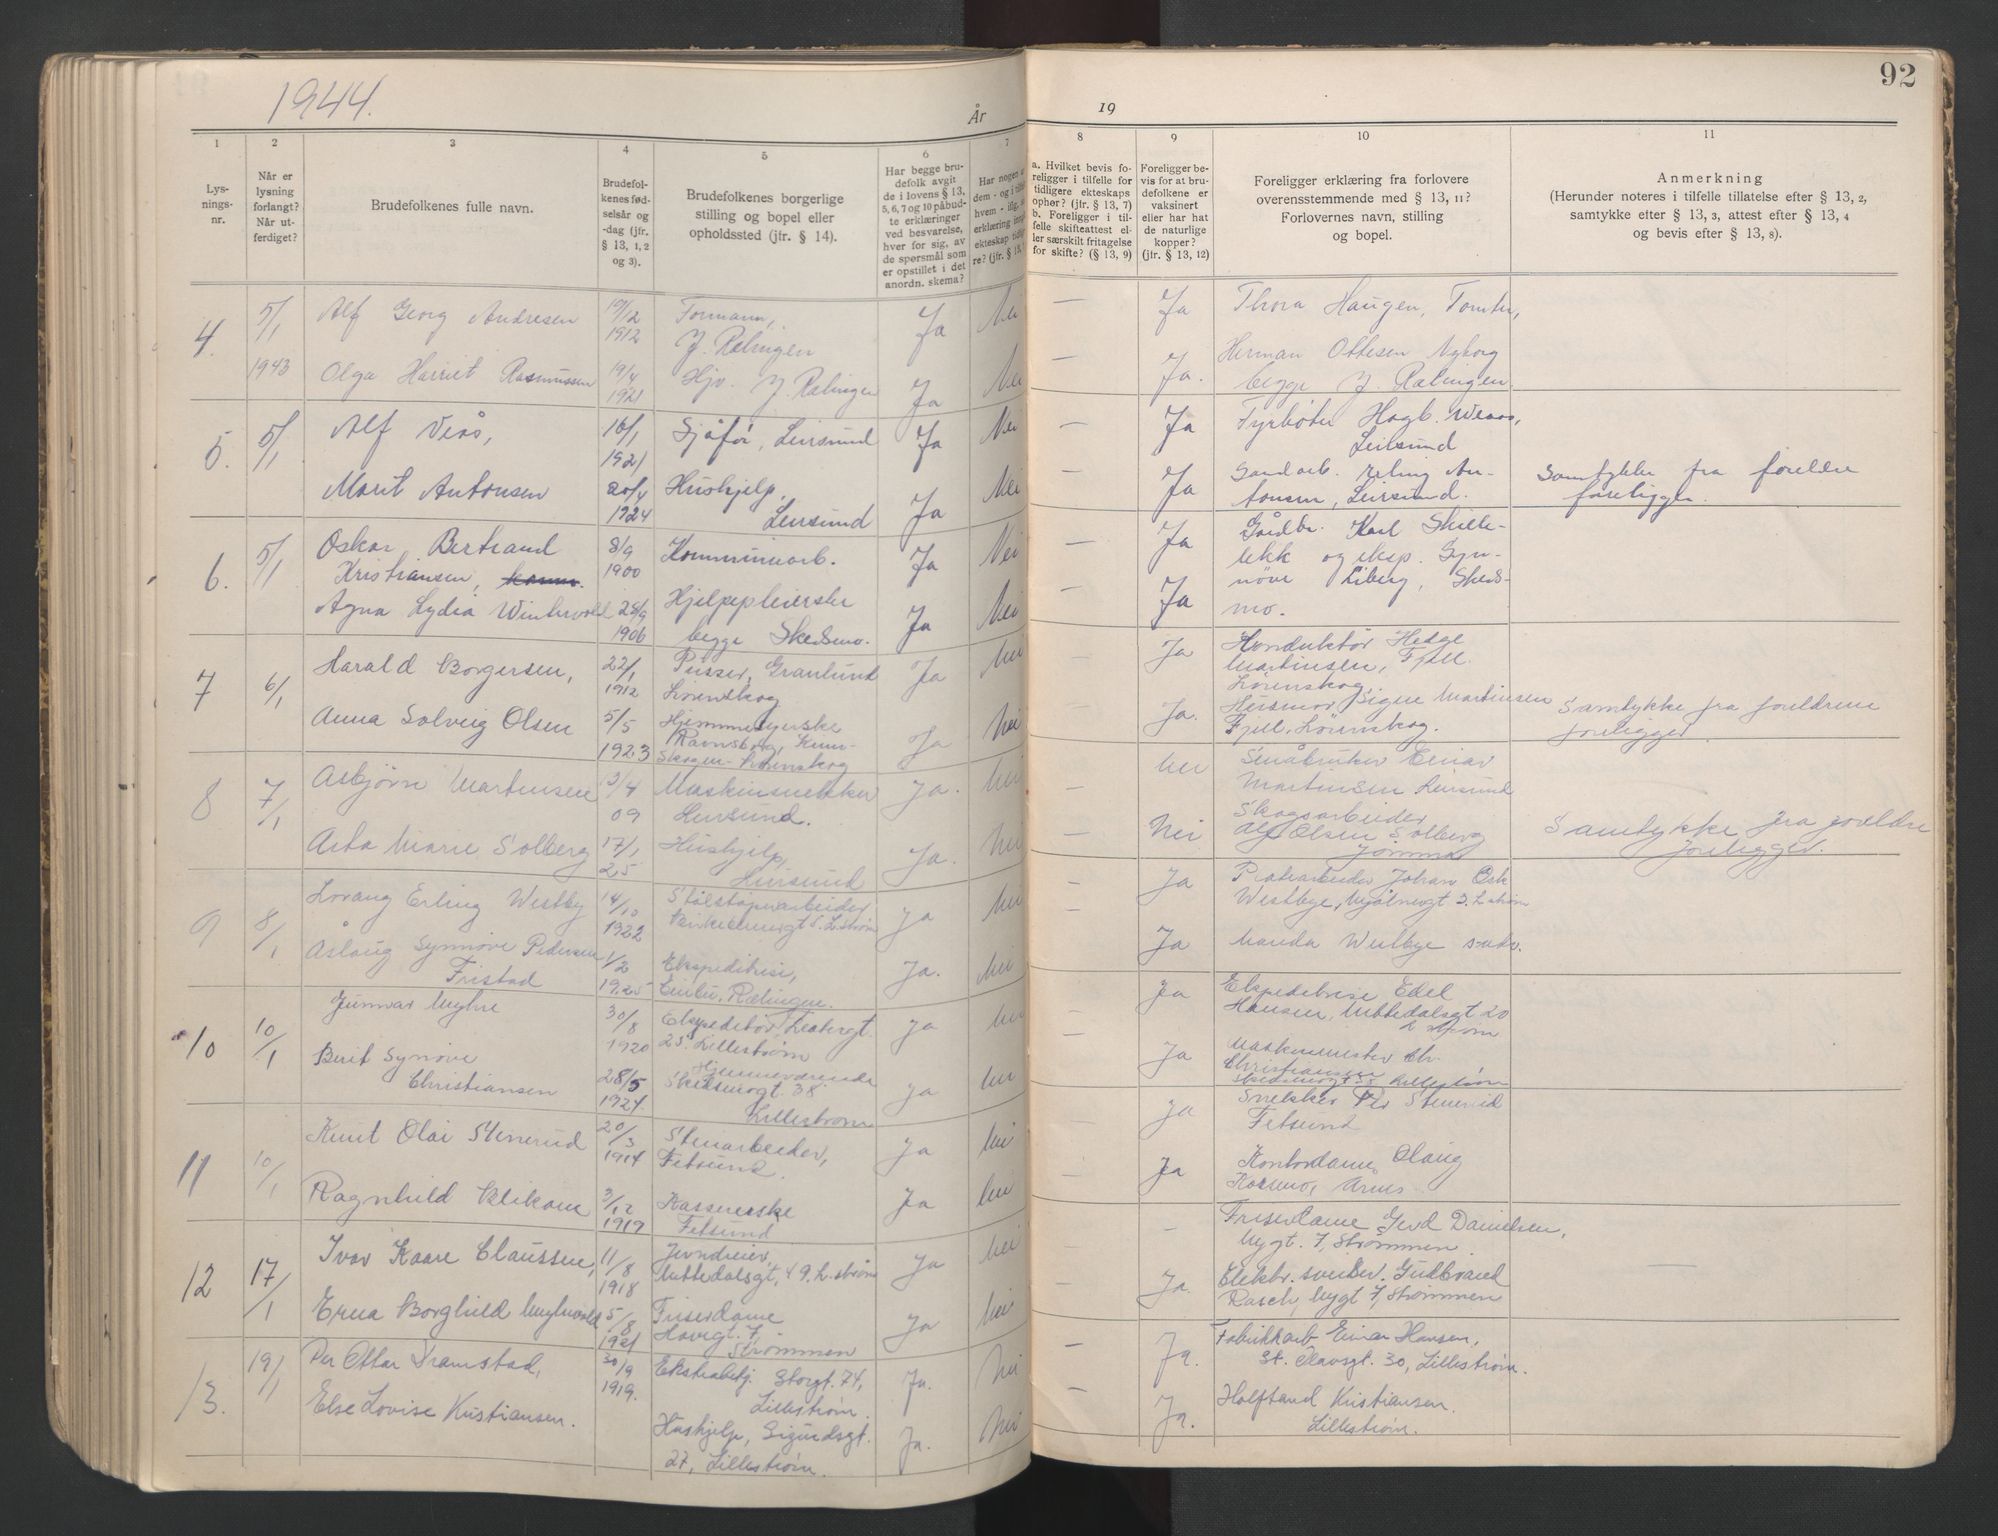 1944.
År
19
92
1
2
3
4
5
6
7
8
9
10
11
Lys-
nings-
nr.
Når er
lysning
forlangt?
Når ut-
ferdiget?
Brudefolkenes fulle navn.
Brudefol-
kenes fød-
selsår og
-dag (jfr.
§ 13, 1, 2
og 3).
Brudefolkenes borgerlige
stilling og bopel eller
opholdssted (jfr. § 14).
Har begge bru-
defolk avgit
de i lovens § 13,
5, 6, 7 og 10 påbud-
te erklæringer
ved besvarelse,
hver for sig, av
de spørsmål som
er opstillet i det
anordn. skema?
Har nogen
dem - og i
hvem - ifg.
erklæring
ekteskap
re? (jfr. §
a. Hvilket bevis fo-
religger i tilfelle for
tidligere ekteskaps
ophør? (jfr. § 13, 7)
b. Foreligger i til-
felle skifteattest el-
ler særskilt fritagelse
for skifte? (§ 13, 9)
Foreligger be-
vis for at bru-
defolkene er
vaksinert
eller har hat
de naturlige
kopper?
(jfr. § 13, 12)
Foreligger erklæring fra forlovere
overensstemmende med § 13, 11?
Forlovernes navn, stilling
og bopel.
Anmerkning
(Herunder noteres i tilfelle tillatelse efter § 13, 2,
samtykke efter § 13, 3, attest efter § 13, 4
og bevis efter § 13, 8).
4. 5/1 Alf Georg Andresen 19/12 1912 Formann, Y. Rælingen Ja Nei — Ja Thora Haugen, Tomter,
1943 Olga Harriet Rasmussen 19/4 1921 Hjv. Y. Rælingen Ja Nei — Ja. Herman Ottesen Nyborg
begge Y. Rælingen.
5. 5/1 Alf Veås, 16/1 1921 Sjåfør, Leirsund Ja Nei Ja Fyrbøter Hagb. Weaas,
Leirsund
Marit Antonsen 20/4 1924 Hushjelp, Leirsund Ja Nei — Ja Sandarb. Erling An-
tonsen, Leirsund. Samtykke fra foreldre
foreligger.
6. 5/1 Oskar Bertrand
Kristiansen, 8/9 1900 Kommunearb. Ja Nei — Ja Gårdbr. Karl Skille-
bekk og eksp. Syn-
Agna Lydia Wintervold 28/9 1906 Hjelpepleierske
begge Skedsmo. Ja Nei — Ja növe Liberg, Skeds-
mo.
7 6/1 Harald Borgersen, 22/1 1912 Pusser, Granlund
Lørenskog Ja Nei Ja Konduktør Helge
Martinsen, Fjell.
Lørenskog
Anna Solveig Olsen 5/5 1923 Hjemmesyerske
Ravnsborg, Kum-
Skogen - Lørenskog Ja Nei — Ja. Husmor Signe Martinsen
Fjell, Lørenskog. Samtykke fra foreldrene
foreligger
8 7/1 Asbjørn Martinsen 13/4 09 Maskinsnekker
Leirsund. Ja. Nei — Nei Småbruker Einar
Martinsen Leirsund
Asta Marie Solberg 17/1 25 Hushjelp,
Leirsund Ja. Nei — Nei Skogsarbeider
Alf Olsen Solberg
Samtykke fra foreldre
foreligger.
9 8/1 Lorang Erling Westby 14/10 1922
L.strøm Ja Nei — Ja Johan Osk
Westbye, L.strøm
Åslaug Synnøve Pedersen
Fristad 1/2 1925 Ekspeditrise,
Rælingen. Ja. Nei — Ja Wanda Westbye
10 10/1 Gunnar Myhre 30/8 1920 Ekspeditør,
25. Lillestrøm Ja Nei — Ja Ekspeditrise Edel
Hansen, Nittedalsgt 20
L.strøm
Berit Synøve
Christiansen 28/5 1924 Hjemmeværende
Skedsmogt. 38
Lillestrøm Ja Nei — Ja Maskinmester Chr.
Christiansen
Skedsmogt 38 Lillestrøm
11 10/1 Knut Olai Stenerud 20/3 1914 Stenarbeider,
Fetsund. Ja Nei — Ja Snekker Per Stenerud
Fetsund
Ragnhild 3/12 1919 Kassererske
Fetsund Ja Nei — Ja Kontordame, Olaug
12 17/1 Ivar Kaare Claussen, 11/8 1918
Nittedalsgt, 49. L.strøm Ja Nei — Friserdame Gerd Danielsen,
Nygt. 7, Strømmen.
Erna Borghild Myhrvold 5/8 1921 Friserdame
Havegt. 7,
Strømmen Ja Nei — Ja. Elektr. svenner. Gudbrand
Rasch, Nygt 7, Strømmen —
13. 19/1 Per Ottar Dramstad, 30/9 1919. Ekstrabetj. Storgt. 74,
Lillestrøm. Ja. Nei — Ja. Fabrikkarb Einar Hansen,
St. Olavsgt. 30, Lillestrøm.
Else Lovise Kristiansen. Hushjelp, Sigurdsgt.
27, Lillestrøm. Ja. Nei — Ja. Kristiansen.
Lillestrøm.